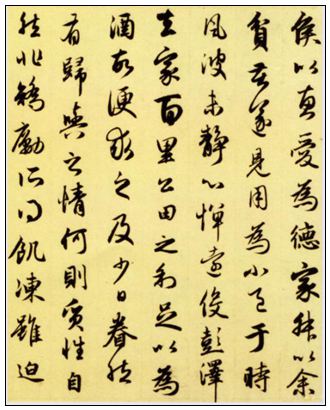 侯以惠愛為德家叔以余
貧苦遂見用為小邑于時
風波未靜心憚遠役彭澤
去家百里公田之利足以為
酒故便求之及少日眷然
有歸與之情何則質性自
然非矯勵所得飢凍雖迫